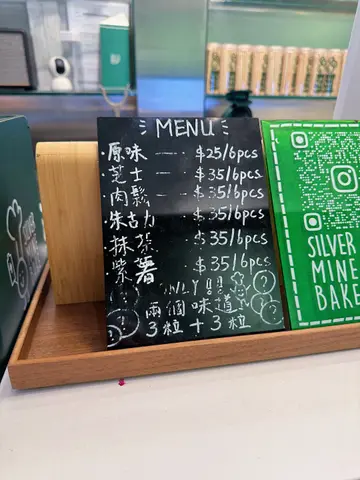 MENU
·原味 —— $25/6pcs
·芝士 —— $35/6pcs
·肉鬆 —— $35/6pcs
·朱古力 $35/6pcs
·抹茶 $35/6pcs
·紫薯 $35/6pcs
ONLY!!
兩個味道
3粒+3粒
SILVER
MINE
BAKE